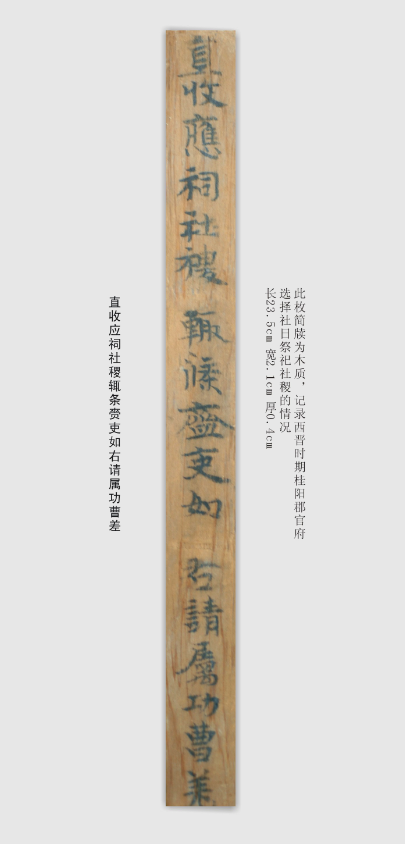 此枚简牍为木质，记录西晋时期桂阳郡官府
选择社日祭祀社稷的情况
长23.5cm 宽2.1cm 厚0.4cm
直收應祠社稷輒條齍吏如右請屬功曹差
直收应祠社稷辄条赍吏如右请属功曹差